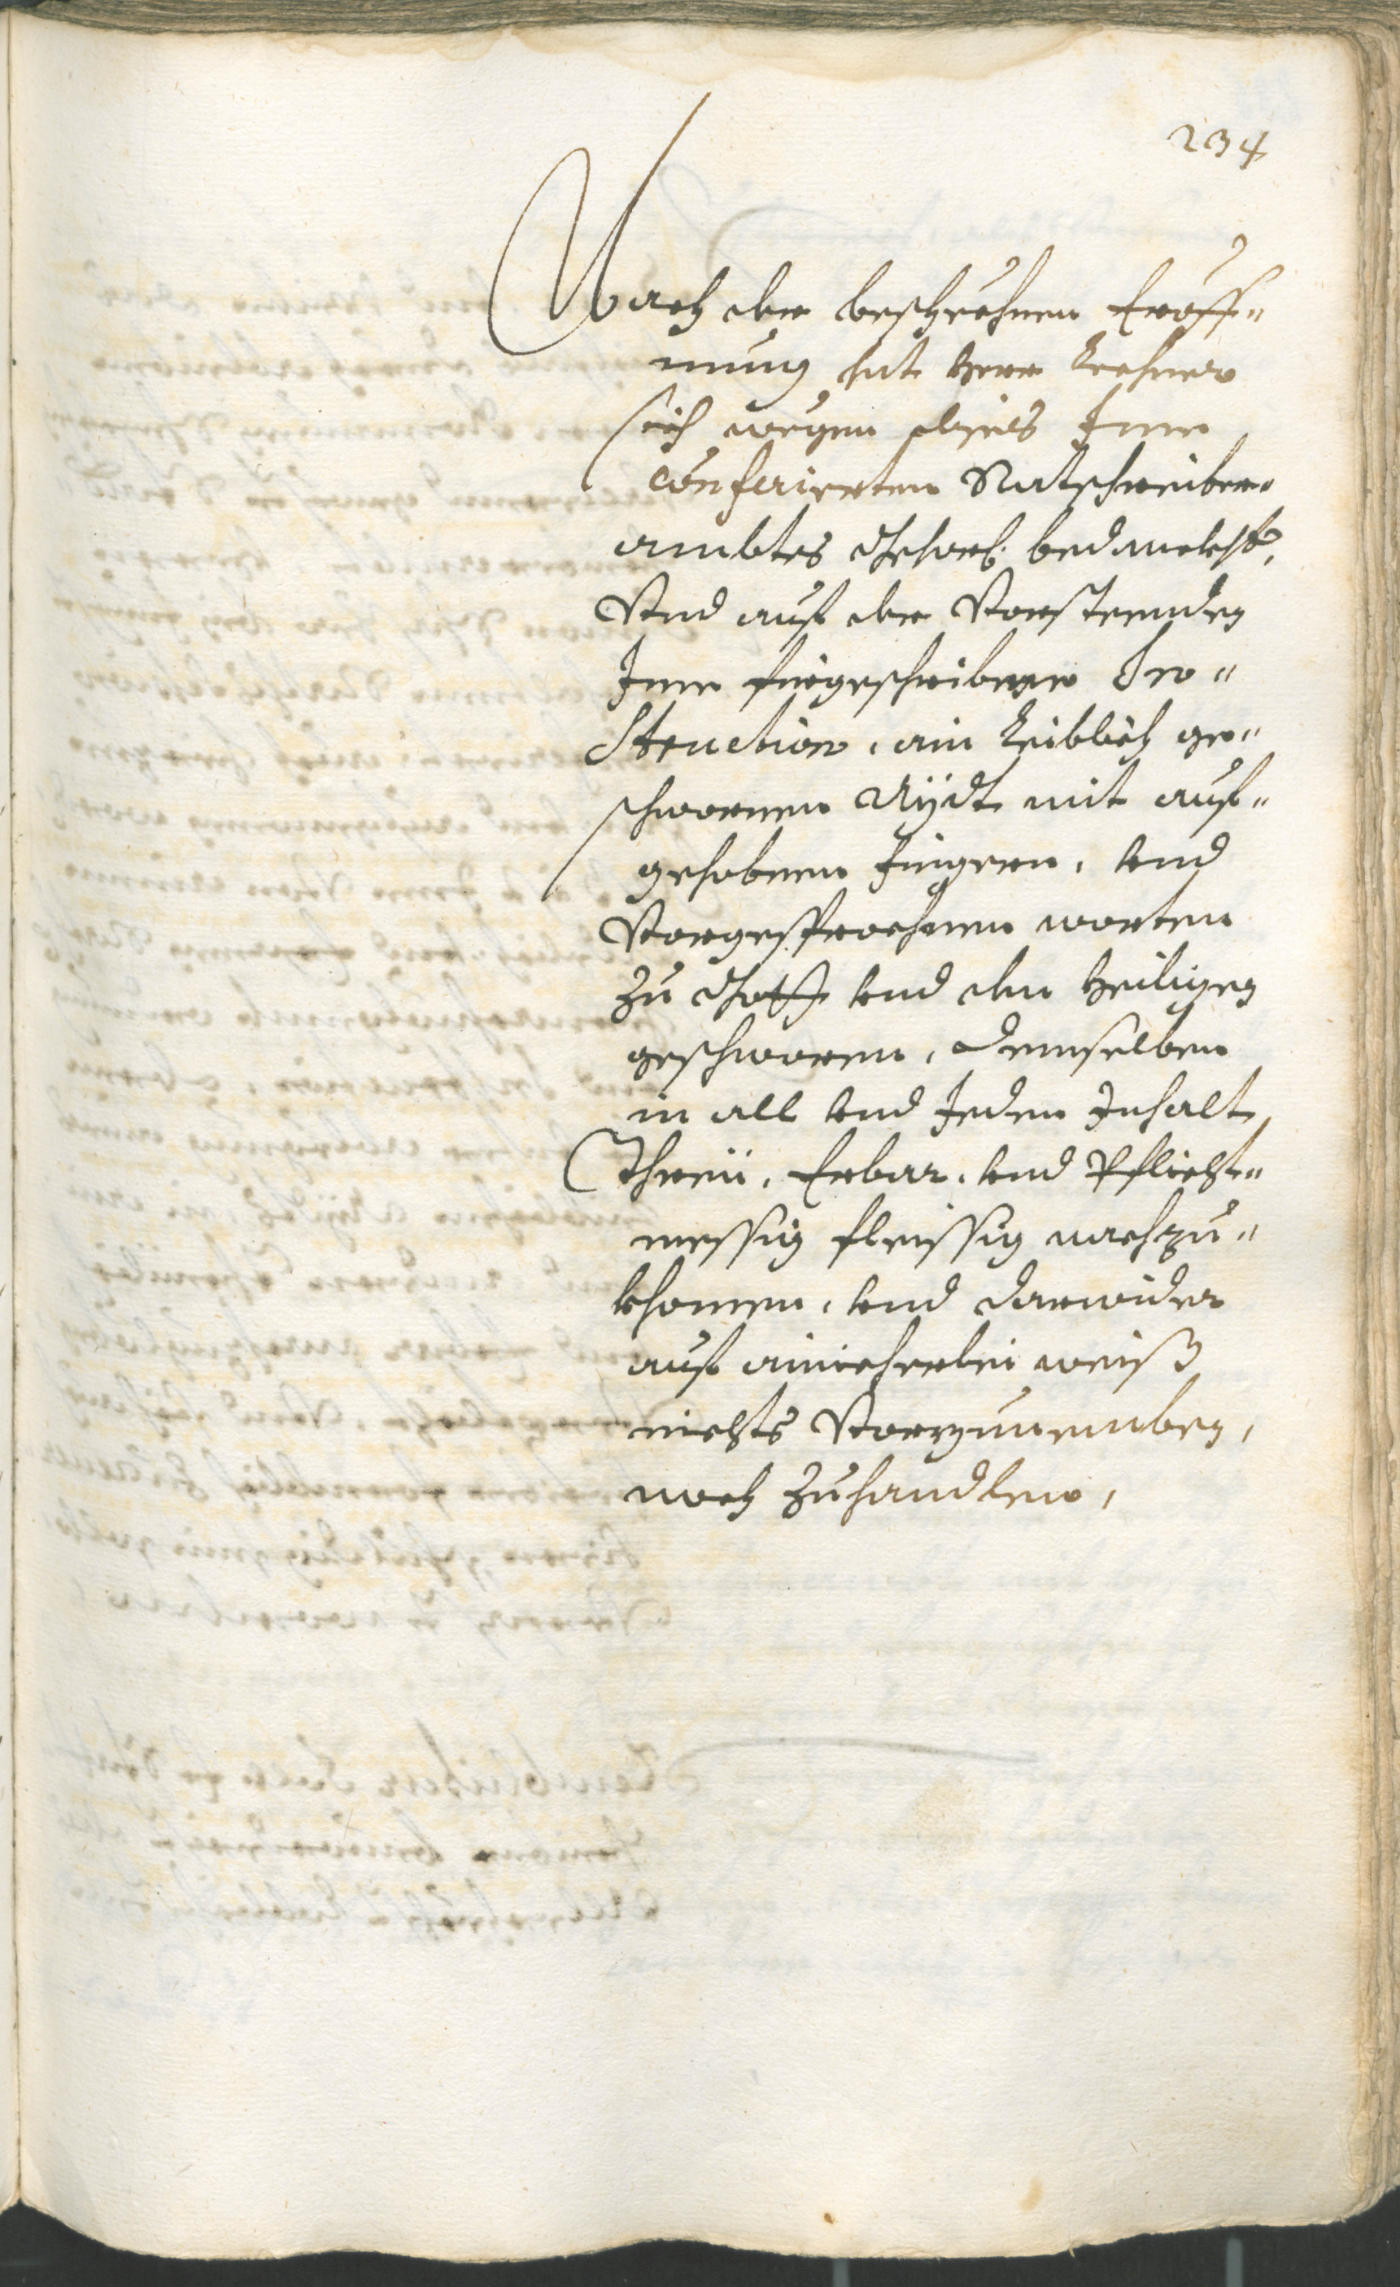 234
Nach der beschechnen Eröff-
nung hat Herr Lechner
sich wegen dises Ime
conferierten Ratschreiber-
ambtes gehors: bedanckht,
Vnd auf der Vorsteenden
Ime fürgeschribnen In-
struction, ain Leiblich ge-
schwornen Aÿdt mit auf-
gehobnen Fingern, vnd
Vorgesprochnen worten
zu Gott vnd den Heiligen
geschworen, demselben
in all vnd Jeden Inhalt,
Threü, Erbar, vnd Pflicht-
messig fleissig nachzu-
khomen, vnd darwider
auf ainicherlei weiß
nichts Vorzunemben,
noch zuhandlen,